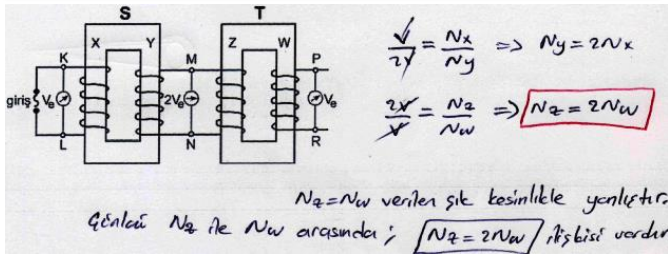 S T
X Y Z W
K M P
giriş Ve 2Ve Ve
L N R
V/2V = Nx/Ny => Ny = 2Nx
2V/V = Nz/Nw => Nz = 2Nw
Nz = Nw verilen şık kesinlikle yanlıştır.
Çünkü Nz ile Nw arasında; Nz = 2Nw ilişkisi vardır